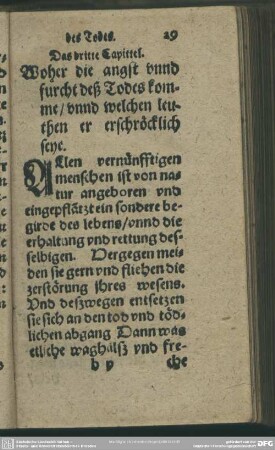 des Todes. 29
Das dritte Capittel.
Woher die angst vnnd
furcht deß Todes kom-
me/ vnnd welchen leu-
then er erschröcklich
seye.
Allen vernünfftigen
menschen ist von na-
tur angeboren vnd
eingepflãtzt ein sondere be-
girde des lebens/ vnnd die
erhaltung vnd rettung des-
selbigen. Dergegen mei-
den sie gern vnd fliehen die
zerstörung ihres wesens.
Vnd deßwegen entsetzen
sie sich an den tod vnd töd-
lichen abgang Dann was
etliche waghälß vnd fre-
h v che